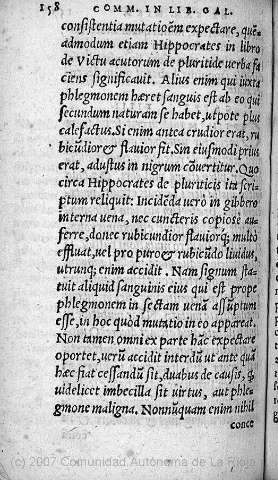 158 COMM. IN LIB. GAL.
consistentia mutatioẽm expectare, quẽ-
admodum etiam Hippocrates in libro
de Victu acutorum de pluritide verba fa
ciens significauit. Alius enim qui iuxta
phlegmonem hæret sanguis est ab eo qui
secundum naturam se habet, utpote plus
calefactus. Si enim antea crudior erat, ru
bicũdior & flauior fit. Sin eiusmodi prius
erat, adustus in nigrum cõuertitur. Quo
circa Hippocrates de pluriticis ita scri-
ptum reliquit. Incidẽda uerò in gibbero
interna uena, nec cuncteris copiosè au-
ferre, donec rubicundior flauiorq; multò
effluat, uel pro puro & rubicũdo liuidus,
utrunq; enim accidit. Nam signum sta-
tuit aliquid sanguinis eius qui est prope
phlegmonem in sectam uenã assũptum
esse, in hoc quòd mutatio in eo appareat.
Non tamen omni ex parte hãc expectare
oportet, uerũ accidit interdũ ut ante quã
hæc fiat cessandũ sit, duabus de causis, q̃
uidelicet imbecilla sit uirtus, aut phleg-
gmone maligna. Nonnũquam enim nihil
conce
(c) 2007 Comunidad Autónoma de La Rioja